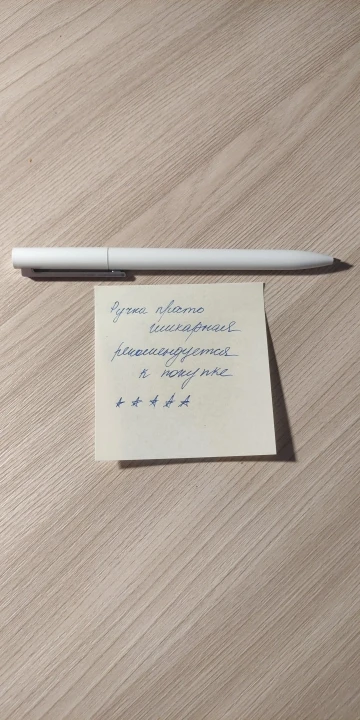 Ручка просто
шикарная
рекомендуется
к покупке
★ ★ ★ ★ ★